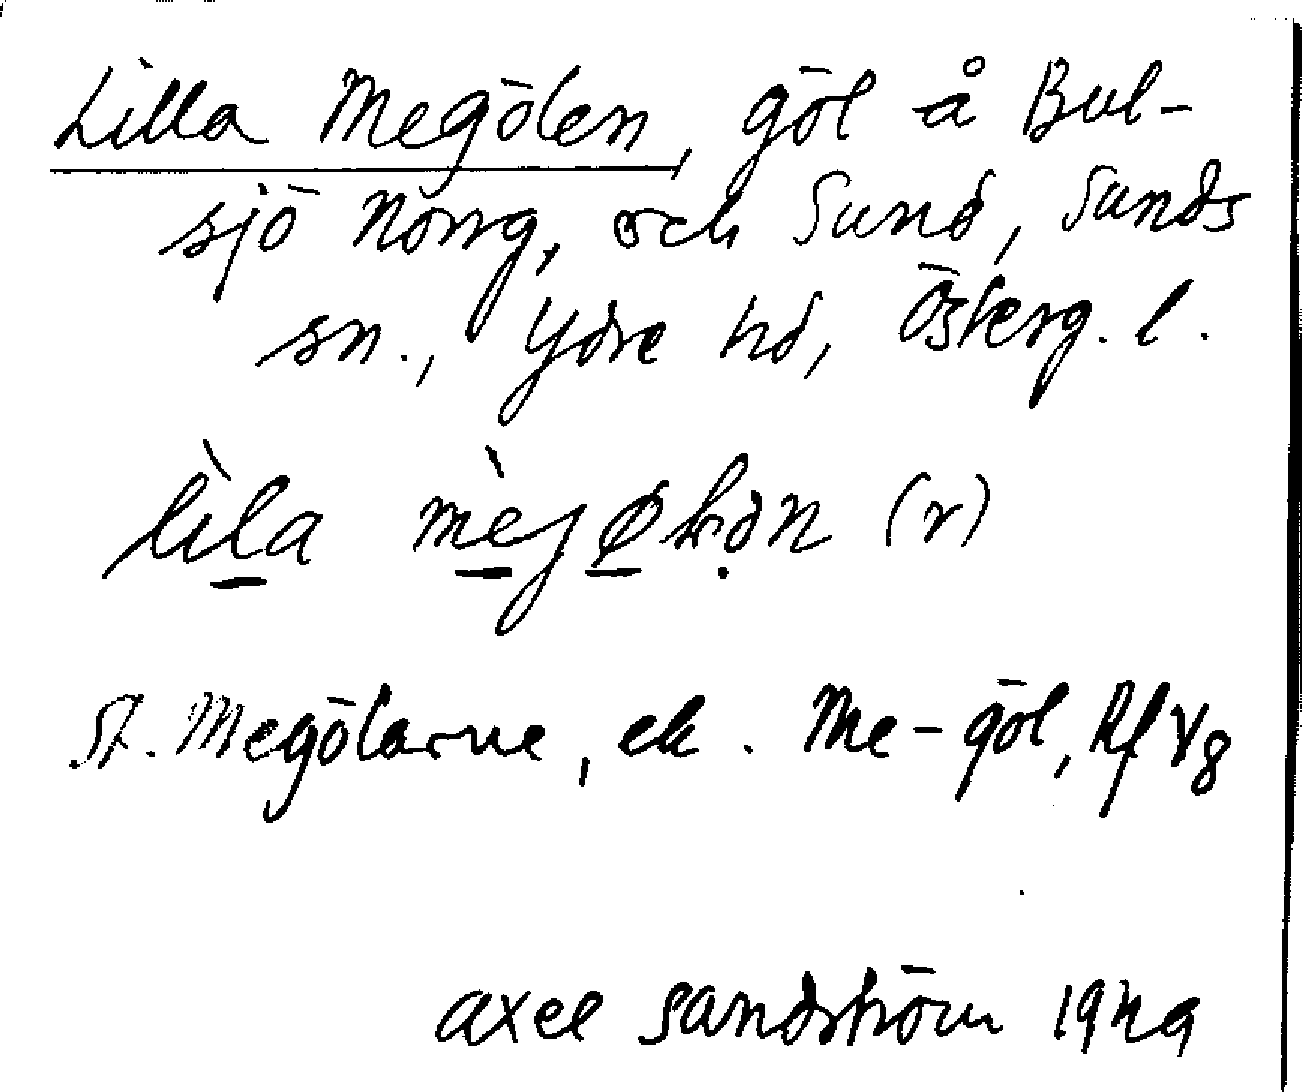 Lilla Megölen, göl å Bul-
sjö Norrg, och Sund, Sunds
sn., Ydre hd, Österg. l.
lìla mèjøḷən (r)
St. Megölarne, ek. Me-göl, Rf V8
Axel Sandström 1949